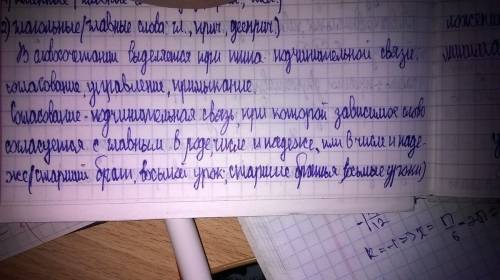 2) глагольные/главные слова: гл., прич., дееприч.)
В словосочетании выделяется три типа подчинительной связи:
согласование, управление, примыкание.
Согласование - подчинительная связь, при которой зависимое слово
согласуется с главным в роде, числе и падеже, или в числе и паде-
же (старший брат, восьмой урок; старшие братья, восьмые уроки)